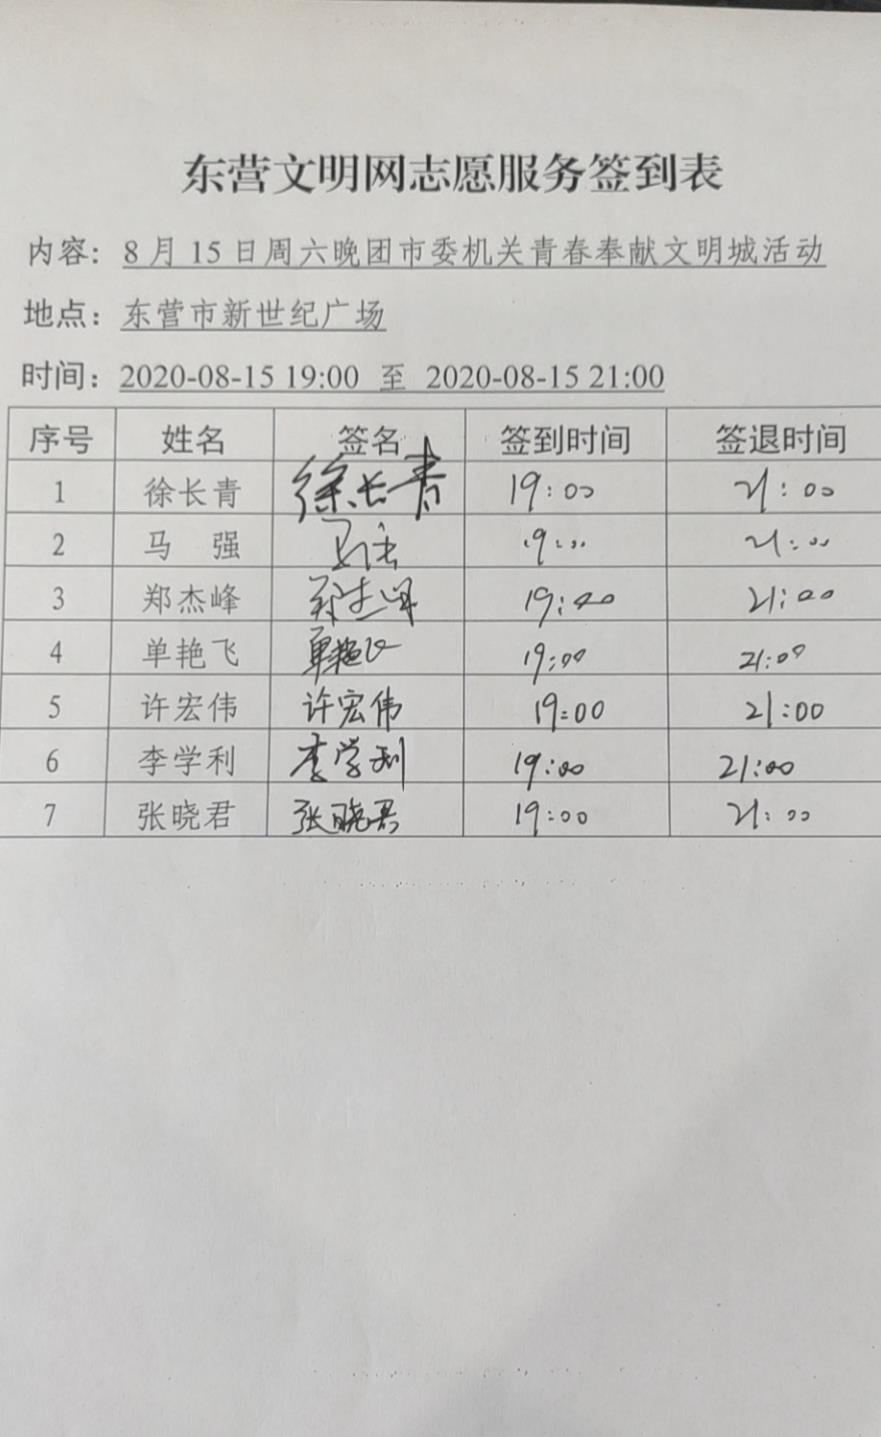 东营文明网志愿服务签到表
内容：8月15日周六晚团市委机关青春奉献文明城活动
地点：东营市新世纪广场
时间：2020-08-15 19:00 至 2020-08-15 21:00
序号 姓名 签名 签到时间 签退时间
1 徐长青 徐长青 19:00 21:00
2 马 强 马强 19:00 21:00
3 郑杰峰 郑杰峰 19:00 21:00
4 单艳飞 单艳飞 19:00 21:00
5 许宏伟 许宏伟 19:00 21:00
6 李学利 李学利 19:00 21:00
7 张晓君 张晓君 19:00 21:00